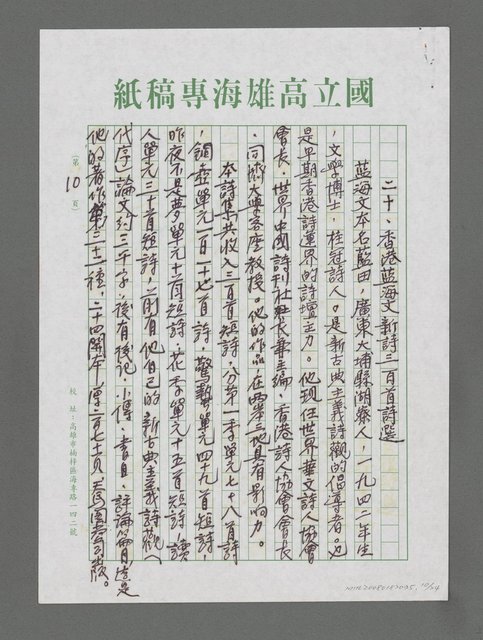 國立高雄海專稿紙
二十、香港藍海文新詩三百首詩選
藍海文本名藍田,廣東大埔縣湖寮人,一九四二年生
,文學博士,桂冠詩人。是新古典主義詩觀的倡導者。也
是早期香港詩運界的詩壇主力。他現任世界華文詩人協會
會長、世界中國詩刊社社長兼主編、香港詩人協會會長
、同濟大學客座教授。他的作品,在兩岸三地具有影響力。
本詩集共收入三百首短詩,分第一季單元七十八首詩
,銅壺單元一百一十七首詩,驚蟄單元四十九首短詩,
昨夜不是夢單元十一首短詩,花季單元十五首短詩,讀
人單元三十首短詩,前有他自己的「新古典主義詩觀」(
代序)論文約三千字,後有後記,小傳、書目、評論篇目,這是
他的著作第二十二種,二十四開本,厚二百七十七頁
(第 10 頁)
校 址:高雄市楠梓區海專路一四二號
10/24